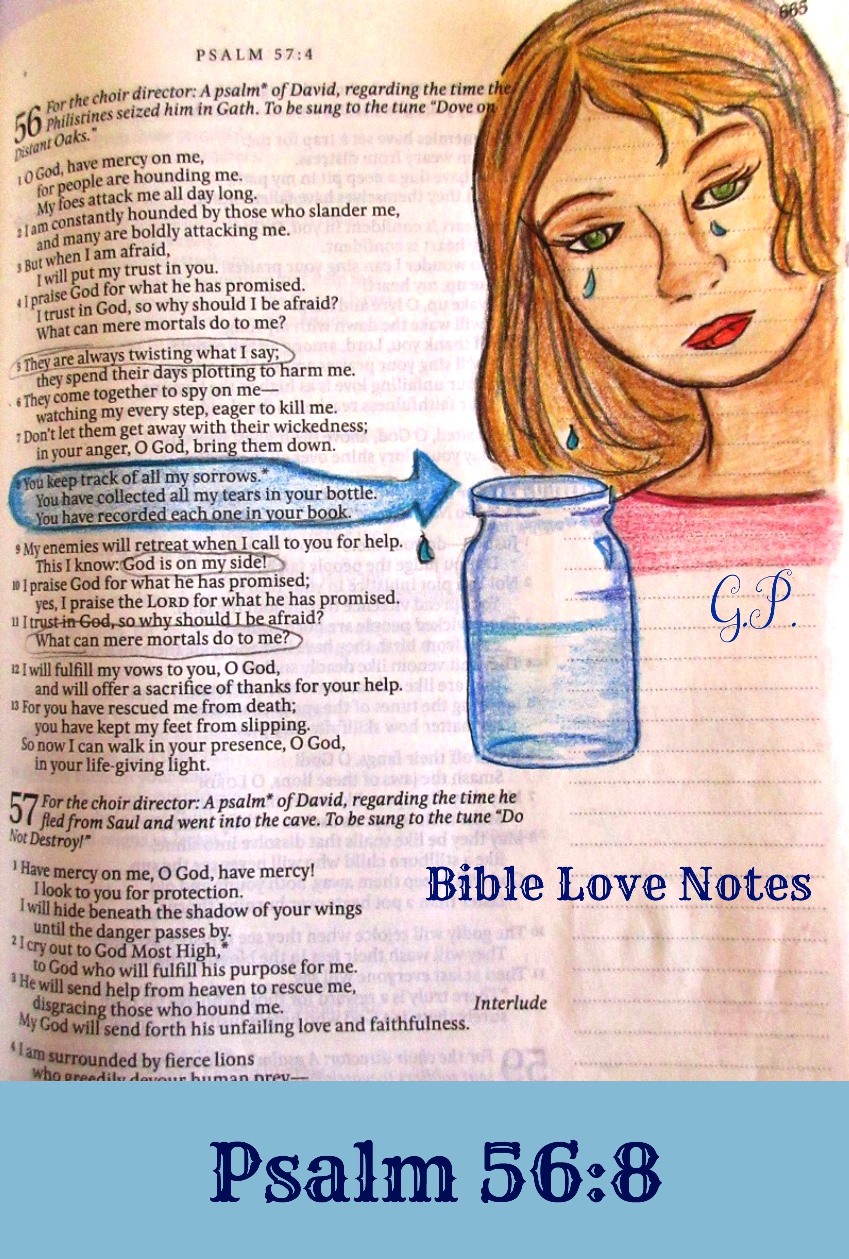 665
PSALM 57:4
56 For the choir director: A psalm* of David, regarding the time the
Philistines seized him in Gath. To be sung to the tune “Dove on
Distant Oaks.”
1 O God, have mercy on me,
for people are hounding me.
My foes attack me all day long.
2 I am constantly hounded by those who slander me,
and many are boldly attacking me.
3 But when I am afraid,
I will put my trust in you.
4 I praise God for what he has promised.
I trust in God, so why should I be afraid?
What can mere mortals do to me?
5 They are always twisting what I say;
they spend their days plotting to harm me.
6 They come together to spy on me—
watching my every step, eager to kill me.
7 Don’t let them get away with their wickedness;
in your anger, O God, bring them down.
8 You keep track of all my sorrows.*
You have collected all my tears in your bottle.
You have recorded each one in your book.
9 My enemies will retreat when I call to you for help.
This I know: God is on my side!
10 I praise God for what he has promised;
yes, I praise the LORD for what he has promised.
11 I trust in God, so why should I be afraid?
What can mere mortals do to me?
12 I will fulfill my vows to you, O God,
and will offer a sacrifice of thanks for your help.
13 For you have rescued me from death;
you have kept my feet from slipping.
So now I can walk in your presence, O God,
in your life-giving light.
57 For the choir director: A psalm* of David, regarding the time he
fled from Saul and went into the cave. To be sung to the tune “Do
Not Destroy!”
1 Have mercy on me, O God, have mercy!
I look to you for protection.
I will hide beneath the shadow of your wings
until the danger passes by.
2 I cry out to God Most High,*
to God who will fulfill his purpose for me.
3 He will send help from heaven to rescue me,
disgracing those who hound me. Interlude
My God will send forth his unfailing love and faithfulness.
4 I am surrounded by fierce lions
who greedily devour human prey—
G.P.
Bible Love Notes
Psalm 56:8